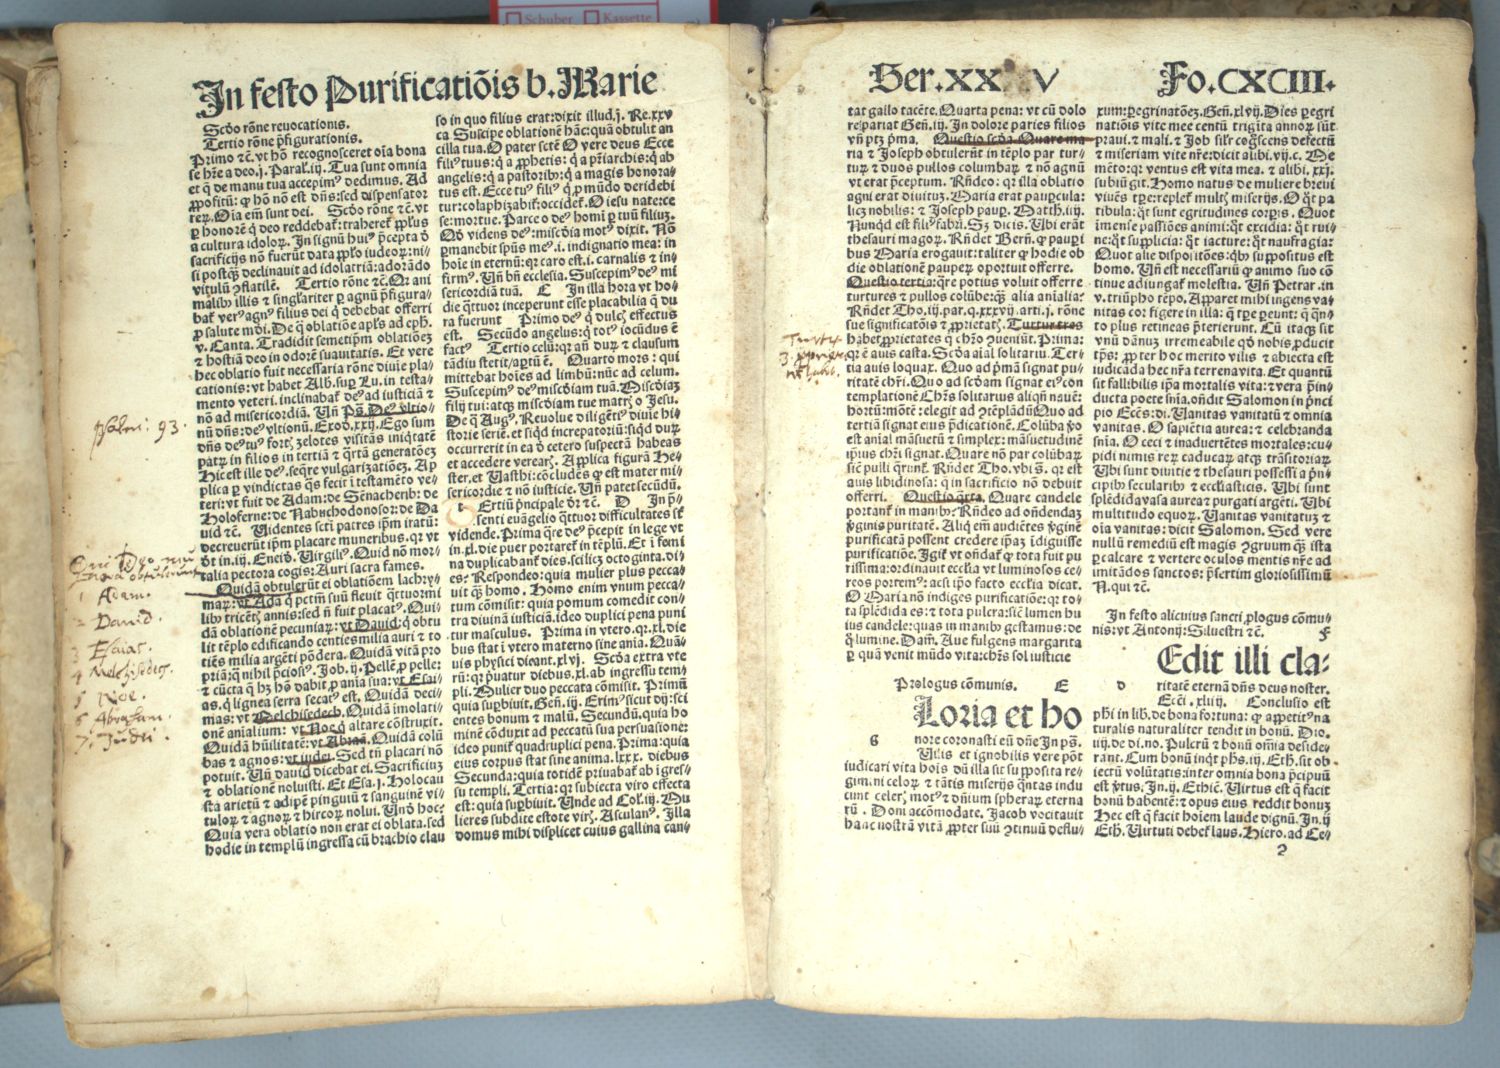 Schuber Kassette
In festo Purificatiõis b. Marie
Scďo rõne reuocationis.
Tertio rõne p̃figurationis.
Primo ⁊c̃. vt hõ recognosceret oĩa bona
se hr̃e a deo. j. Paral. iij. Tua sunt omnia
et q̃ de manu tua accepimꝰ dedimus. Ad
ꝓpositũ: ꝙ hõ nõ est dñs: sed dispensator
rerꝝ. Oĩa em̃ sunt dei. Scďo rõne ⁊c̃. vt
ꝑ honorẽ q̃ deo reddebat᷑: traheret᷑ ꝓp̃lus
a cultura idolorꝝ. In signũ huiꝰ p̃cepta ď
sacrificijs nõ fuerũt data ꝓp̃lo iudeorꝝ: ni⸗
si postq̃ꝫ declinauit ad idolatriã: adorãdo
vitulũ ɔflatilẽ. Tertio rõne ⁊c̃. Qꝛ ani
malibꝰ illis ⁊ singl̃ariter ꝑ agnũ p̃figura⸗
bat᷑ verꝰ agnꝰ filius dei q̃ debebat offerri
ꝓ salute mũdi. De q̃ oblatiõe apl̃s ad eph̃.
v. Canta. Tradidit semetip̃m oblatiõeꝫ
⁊ hostiã deo in odorẽ suauitatis. Et vere
hec oblatio fuit necessaria rõne diuie pla⸗
cationis: vt habet Alb. suꝑ Lu. in testa⸗
mento veteri. inclinabat᷑ deꝰ ad iusticiã ⁊
nõ ad misericordiã. Vñ Ps̃. Deꝰ vltio⸗
nũ dñs: deꝰ vltionũ. Exod. xxij. Ego sum
dñs deꝰ tuꝰ fortꝭ zelotes visitãs iniq̃tatẽ
patꝝ in filios in tertiã ⁊ q̃rtã generatõeꝫ
Hic est ille deꝰ. seq̃re vulgarizatiõeꝫ. Ap
plica ꝑ vindictas q̃s fecit ĩ testamẽto ve⸗
teri: vt fuit de Adam: de Sẽnacherib: de
Holoferne: de Nabuchodonosor: de Da
uid ⁊c̃. Videntes sctĩ patres ip̃m iratũ:
decreuerũt ip̃m placare muneribus. qꝛ vt
ďt in. iij. Eneiď. Virgiliꝰ. Quid nõ mor⸗
talia pectora cogis: Auri sacra fames.
Quidã obtulerũt ei oblatiõem lachry⸗
maꝝ: vt Ada q̃ pctm̃ suũ fleuit q̃ttuormi
libꝰ tricẽtꝭ annis: sed ñ fuit placatꝰ. Qui⸗
dã oblationẽ pecuniaꝝ: vt Dauid: q̃ obtu
lit tẽplo edificando centiesmilia auri ⁊ to
tiẽs milia argẽti põdera. Quidã vitã pro
priã: q̃ nihil p̃ciosiꝰ. Job. ij. Pellẽ ꝓ pelle:
⁊ cũcta q̃ hꝫ hõ dabit ꝓ ania sua: vt Esai⸗
as. q̃ lignea serra secatꝰ est. Quidã deci⸗
mas: vt Melchisedech. Quidã imolati⸗
onẽ anialium: vt Noe q̃ altare cõstruxit.
Quidã hũilitatẽ: vt Abraã. Quidã colũ
bas ⁊ agnos: vt iudei. Sed tñ placari nõ
potuit. Vñ dauid dicebat ei. Sacrificiuꝫ
⁊ oblationẽ noluisti. Et Esa. j. Holocau
sta arietũ ⁊ adipẽ pinguiũ ⁊ sanguinẽ vi⸗
tuloꝝ ⁊ agnoꝝ ⁊ hircoꝝ nolui. Unď hoc:
Quia vera oblatio non erat ei oblata. sed
hodie in templũ ingressa cũ brachio clau
so in quo filius erat: dixit illud. j. Re. xxv
ca Suscipe oblationẽ hãc: quã obtulit an
cilla tua. O pater sctẽ O vere deus Ecce
filiꝰ tuus: q̃ a ꝓphetis: q̃ a p̃riarchis: q̃ ab
angelis: q̃ a pastoribꝰ: q̃ a magis honora⸗
tus est. Ecce tuꝰ filiꝰ q̃ ꝓ mũdo deridebi
tur: colaphizabit᷑: occidet᷑. O iesu nate: ec
se: mortue. Parce o deꝰ homĩ ꝑ tuũ filiuꝫ.
Qď videns deꝰ: miscďia motꝰ dixit. Nõ
ꝑmanebit spũs meꝰ. i. indignatio mea: in
hoĩe in eternũ: qꝛ caro est. i. carnalis ⁊ in⸗
firmꝰ. Vñ bñ ecclesia. Suscepimꝰ deꝰ mi
sericordiã tuã. C In illa hora vt ho⸗
die q̃ttuor inceperunt esse placabilia q̃ du
ra fuerunt Primo deꝰ q̃ dulcꝭ effectus
est. Secũdo angelus: q̃ totꝰ iocũdus ẽ
factꝰ Tertio celũ: qꝛ añ durꝫ ⁊ clausum
tãdiu stetit/ aꝑtũ ẽ. Quarto mors: qui
mittebat hoĩes ad limbũ: nũc ad celum.
Suscepimꝰ deꝰ miscďiam tuã. Miscďiaꝫ
filij tui: atqꝫ miscďiam tue matrꝭ o Jesu.
De q̃ Augꝰ. Reuolue diligẽtꝭ diuie hi⸗
storie seriẽ. et siqď increpatoriũ: siqď durꝫ
occurrerit in ea ď cetero suspectã habeas
et accedere verearꝭ. Applica figurã He⸗
ster, et Vasthi: cõcludẽs ꝙ est mater mi⸗
sericordie ⁊ nõ iusticie. Vñ patet secũdũ.
t Ertiũ p̃ncipale ďr ⁊c̃. D In p̃⸗
senti euãgelio q̃ttuor difficultates sẽ
vidende. Prima q̃re deꝰ p̃cepit in lege vt
in. xl. die puer portaret᷑ in tẽplũ. Et ĩ femĩ
na duplicabant᷑ dies. scilicꝫ octoginta. di⸗
es: Respondeo: quia mulier plus pecca⸗
uit q̃ꝫ homo. Homo enim vnum pecca⸗
tum cõmisit: quia pomum comedit con⸗
tra diuinã iusticiã. ideo duplici pena puni
tur masculus. Prima in vtero. qꝛ. xl. die
bus stat ĩ vtero materno sine ania. Quã⸗
uis physici dicant. xlvj. Scďa extra vte
rũ: qꝛ p̃uatur diebus. xl. ab ingressu tem⸗
pli. Mulier duo peccata cõmisit. Primũ
quia suꝑbiuit. Geñ. iij. Erimꝰ sicut dij: sci
entes bonum ⁊ malũ. Secundũ. quia ho
minẽ cõduxit ad peccatũ sua persuasione:
ideo punit᷑ quadruplici pena. Prima: quia
eius corpus stat sine anima. lxxx. diebus
Secunda: quia totidẽ priuabat᷑ ab igres⸗
su templi. Tertia: qꝛ subiecta viro effecta
est: quia suꝑbiuit. Unde ad Col. iij. Mu
lieres subdite estote virꝭ. Asculanꝰ. Illa
domus mihi displicet cuius gallina can⸗
psalm: 93.
Qui Deo mu
nera obtulerunt
1 Adam.
2 Dauid.
3 Esaias.
4 Melchisedech.
5 Noe.
6 Abraham.
7. Judei.
Ser. XX V Fo. CXCIII.
tat gallo tacẽte. Quarta pena: vt cũ dolo
re pariat Geñ. iij. In dolore paries filios
vñ ptꝫ p̃ma. Questio scďa. Quare ma⸗
ria ⁊ Joseph obtulerũt in tẽplo par tur⸗
turꝫ ⁊ duos pullos columbarꝫ ⁊ nõ agnũ
vt erat p̃ceptum. Rñdeo: qꝛ illa oblatio
agni erat diuitũ. Maria erat pauꝑcula:
licꝫ nobilis: ⁊ Joseph pauꝑ. Matth. iiij.
Nunqď est filiꝰ fabri. Sꝫ dicis. Vbi erãt
thesauri magorꝝ. Rñdet Berñ. ꝙ pauꝑi
bus Maria erogauit: taliter ꝙ hodie ob
die oblationẽ pauperꝝ oportuit offerre.
Questio tertia: q̃re potius voluit offerre
turtures ⁊ pullos colũbe: q̃ꝫ alia aĩalia:
Rñdet Tho. iij. par. q. xxxvij. arti. j. rõne
sue significatõis ⁊ ꝓprietatꝭ. Turtur tres
habet ꝓprietates q̃ chr̃o ɔueniũt. Prima:
qꝛ ẽ auis casta. Scďa aĩal solitariũ. Ter⸗
tia auis loquax. Quo ad p̃mã signat pu⸗
ritatẽ chr̃i. Quo ad scďam signat eiꝰ con⸗
templationẽ Chr̃s solitarius aliqñ nauẽ:
hortũ: mõtẽ: elegit ad ɔtẽplãdũ Quo ad
tertiã signat eius p̃dicationẽ. Colũba ꝟo
est anial mãsuetũ ⁊ simplex: mãsuetudinẽ
ip̃ius chr̃i signat. Quare nõ par colũbaꝝ
sic̃ pulli q̃runt᷑. Rñdet Tho. vbi s̃. qꝛ est
auis libidinosa: q̃ in sacrificio nõ debuit
offerri. Questio q̃rta. Quare candele
portant᷑ in manibꝰ: Rñdeo ad oñdendaꝫ
ꝟginis puritatẽ. Aliq̃ em̃ audiẽtes ꝟginẽ
purificatã possent credere ip̃aꝫ ĩdiguisse
purificatiõe. Igit᷑ vt oñdat᷑ ꝙ tota fuit pu
rissima: ordinauit eccľia vt luminosos ce⸗
reos portemꝰ: acsi ip̃o facto eccľia dicat.
O Maria nõ indiges purificatiõe: qꝛ to⸗
ta splẽdida es: ⁊ tota pulcra: sic̃ lumen hu
ius candele: quas in manibꝰ gestamus: de
q̃ lumine. Dam̃. Aue fulgens margarita
ꝑ quã venit mũdo vita: chr̃s sol iusticie
Prologus cõmunis. E
Gloria et ho
nore coronasti eũ dñe In ps̃.
Vilis et ignobilis vere põt
iudicari vita hoĩs dũ illa sit suꝓposita re⸗
gim̃. ni celoꝝ ⁊ tãtis miserijs q̃ntas indu
cunt celerꝭ motꝰ ⁊ dñium spherarꝝ eterna
rũ. Doni accõmodate. Jacob vocitauit
hanc nostrã vitã ꝓpter suũ ɔtinuũ deflu⸗
Turtur
3 proprieta
tes habet.
xum: ꝑegrinatõeꝫ. Geñ. xlvij. Dies ꝑegri
natiõis vite mee centũ trigĩta annoꝝ sũt
praui. ⁊ mali. ⁊ Job sil̃r cog̃scens defectũ
⁊ miseriam vite nr̃e: dicit alibi. vij. c. Me
mẽto: qꝛ ventus est vita mea. ⁊ alibi. xxj.
subiũgit. Homo natus de muliere breui
viuẽs tꝑe: replet᷑ multꝭ miserijs. O q̃t pa
tibula: q̃t sunt egritudines corꝑis. Quot
imense passiões animi: q̃t excidia: q̃t rui⸗
ne: q̃t supplicia: q̃t iacture: q̃t naufragia:
Quot alie dispõitões: qͥbꝰ suꝓpositus est
homo. Vñ est necessariũ ꝙ animo suo cõ
tinue adiungat᷑ molestia. Vñ Petrar. in
v. triũpho tẽpo. Apparet mihi ingens va⸗
nitas cor figere in illa: q̃ tꝑe ꝑeunt: q̃ q̃n⸗
to plus retineas p̃terierunt. Cũ itaqꝫ sit
vnũ dãnuꝫ irremeabile qď nobis ꝓducit
tp̃s: ꝓpter hoc merito vilis ⁊ abiecta est
iudicada hec nr̃a terrena vita. Et quantũ
sit fallibilis ip̃a mortalis vita: ⁊ vera p̃in⸗
ducta poete sñia. oñdit Salomon in p̃nci
pio Ecc̃s: di. Vanitas vanitatũ ⁊ omnia
vanitas. O sapiẽtia aurea: ⁊ celebranda
sñia. O ceci ⁊ inaduertẽtes mortales: cu⸗
pidi nimis rerꝝ caducarꝝ atqꝫ trãsitoriaꝝ
Vbi sunt diuitie ⁊ thesauri possessi a p̃n⸗
cipibꝰ secularibꝰ ⁊ ecclesiasticis. Vbi sunt
splẽdida vasa aurea: ⁊ purgati argẽti. Vbi
multitudo equoꝝ. Vanitas vanitatuꝫ ⁊
oĩa vanitas: dicit Salomon. Sed vere
nullũ remediũ est magis ɔgruum q̃ꝫ ista
ꝑ calcare ⁊ vertere oculos mentis nr̃e ad
imitãdos sanctos: p̃sertim gloriosissimũ
N. qui ⁊c̃.
In festo alicuius sancti ꝓlogus cõmu⸗
nis: vt Antonij: Siluestri ⁊c̃. F
Dedit illi cla⸗
ritatẽ eternã dñs deus noster.
Ecc̃i. xlvij. Conclusio est
phĩ in lib. de bona fortuna: ꝙ appetitꝰ na
turalis naturaliter tendit in bonũ. Dio.
iiij. de di. no. Pulcrũ ⁊ bonũ om̃ia deside⸗
rant. Cum bonũ inqt p̃hs. j. Eth̃. sit ob
iectũ volũtatis: inter omnia bona p̃cipuũ
est ꝟtus. In. ij. Ethic̃. Virtus est q̃ facit
bonũ habentẽ: ⁊ opus eius reddit bonuꝫ
Hec est q̃ facit hoĩem laude dignũ. In. ij
Eth̃. Virtuti debet᷑ laus. Hiero. ad Ce⸗
2